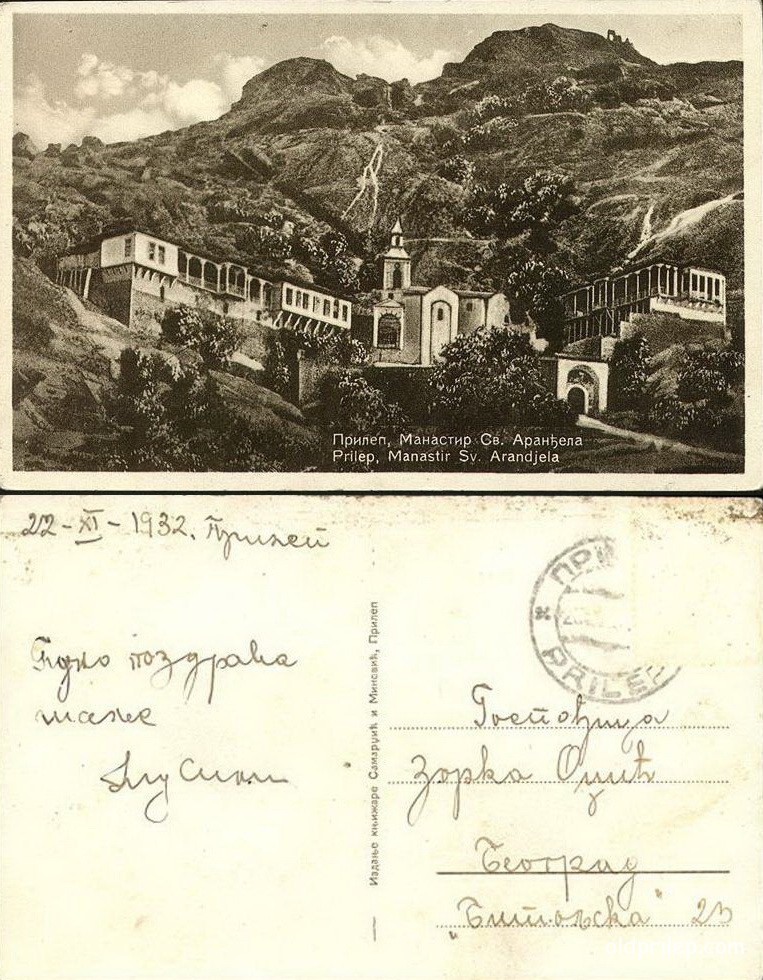 Прилеп, Манастир Св. Аранђела
Prilep, Manastir Sv. Arandjela
22-XI-1932. Прилеп
поздрава
шаље
Издање књижаре Самарџић и Миновић, Прилеп
ПРИ
PRILEP
Госпођица
Зорка
Београд
„Битољска" 23